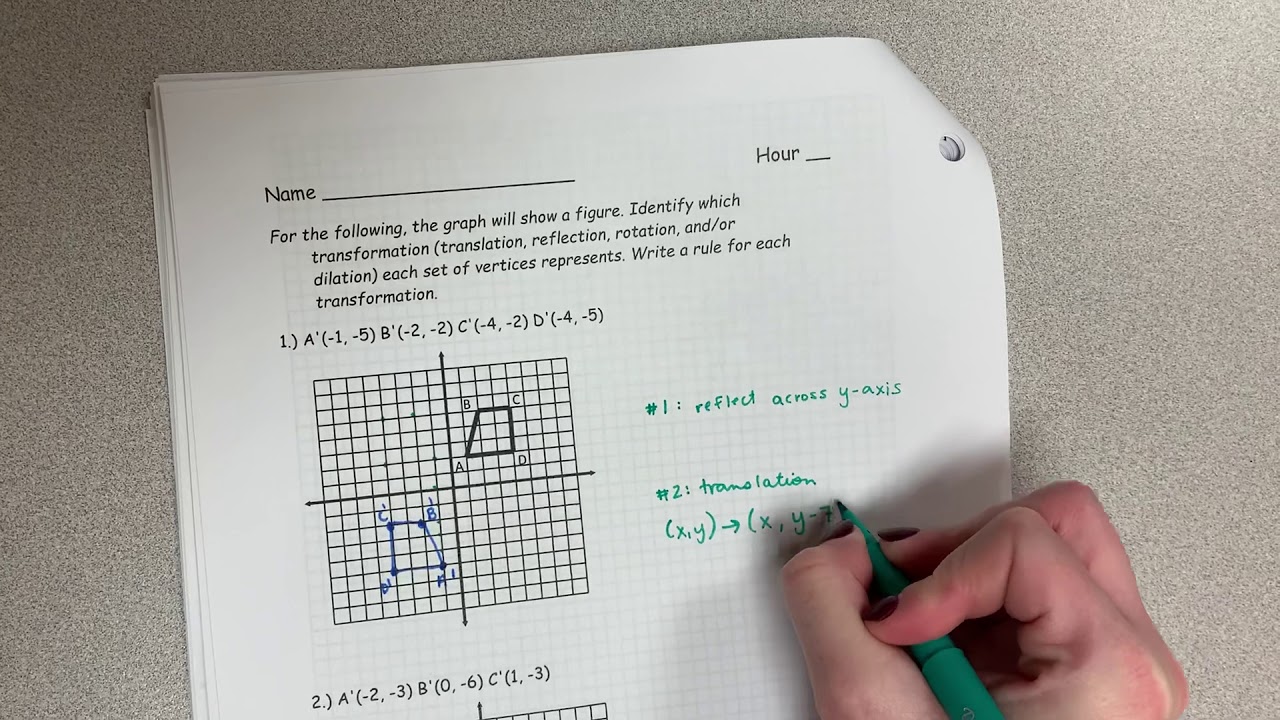 Hour __
Name ______________
For the following, the graph will show a figure. Identify which
transformation (translation, reflection, rotation, and/or
dilation) each set of vertices represents. Write a rule for each
transformation.
1.) A'(-1, -5) B'(-2, -2) C'(-4, -2) D'(-4, -5)
B C
A D
C' B'
D' A'
#1: reflect across y-axis
#2: translation
(x,y) → (x, y-7
2.) A'(-2, -3) B'(0, -6) C'(1, -3)